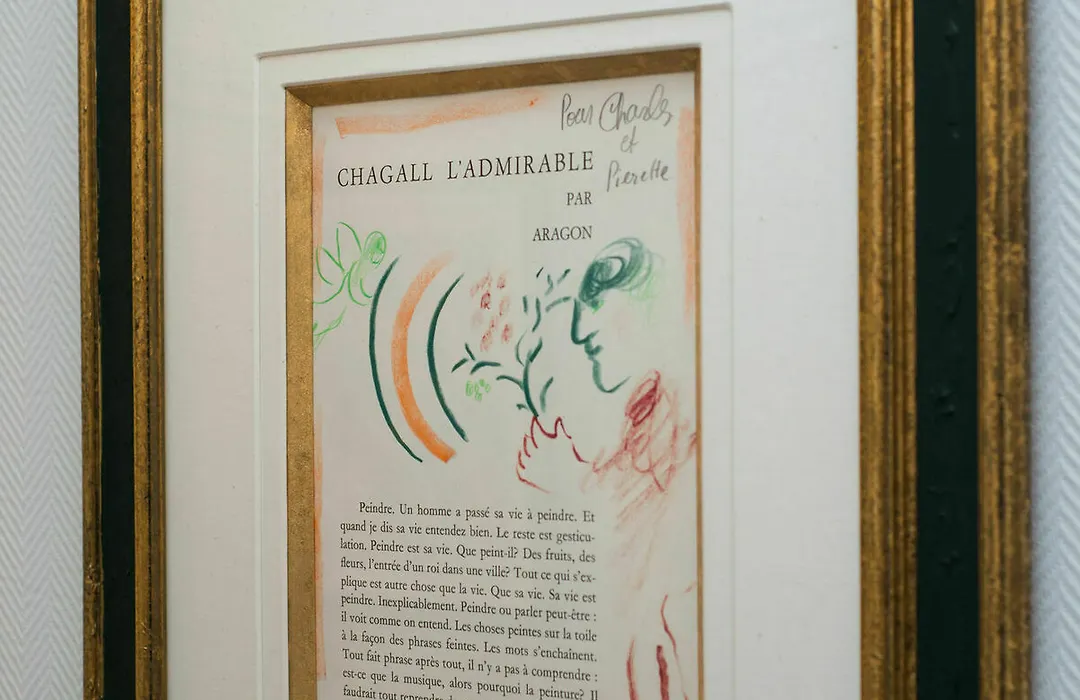 Pour Charles
et
Pierette
CHAGALL L'ADMIRABLE
PAR
ARAGON
Peindre. Un homme a passé sa vie à peindre. Et
quand je dis sa vie entendez bien. Le reste est gesticu-
lation. Peindre est sa vie. Que peint-il? Des fruits, des
fleurs, l'entrée d'un roi dans une ville? Tout ce qui s'ex-
plique est autre chose que la vie. Que sa vie. Sa vie est
peindre. Inexplicablement. Peindre ou parler peut-être :
il voit comme on entend. Les choses peintes sur la toile
à la façon des phrases feintes. Les mots s'enchaînent.
Tout fait phrase après tout, il n'y a pas à comprendre :
est-ce que la musique, alors pourquoi la peinture? Il
faudrait tout reprendre